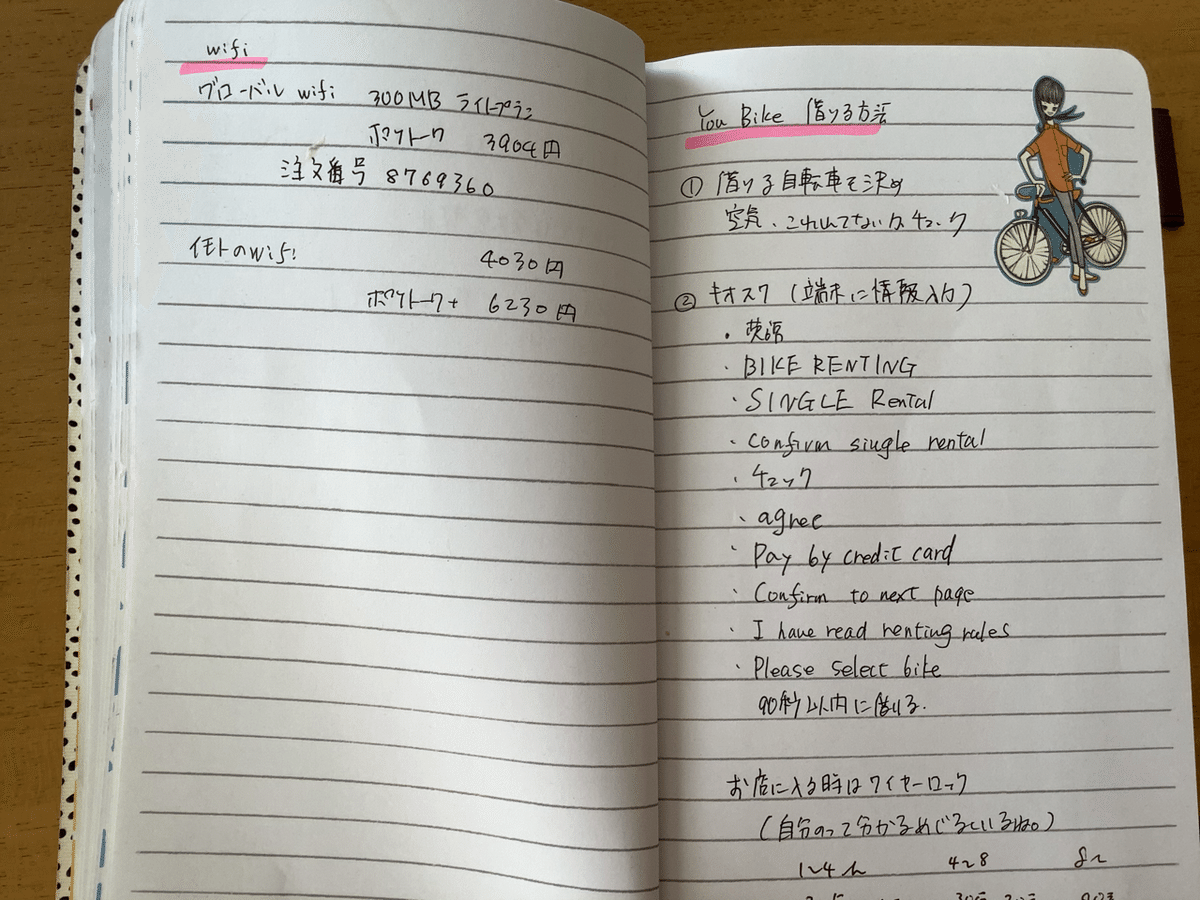 wifi
グローバル wifi 300MB ライトプラン
ポケトーク 3904円
注文番号 8769360
イモトのwifi
4030円
ポケトーク+ 6230円
You Bike 借りる方法
① 借りる自転車を決め
空気、こわれてないかチェック
② キオスク (端末に情報入力)
・英語
・BIKE RENTING
・SINGLE Rental
・confirm single rental
・チェック
・agree
・Pay by credit card
・Confirm to next page
・I have read renting rules
・Please select bike
90秒以内に借りる.
お店に入る時はワイヤーロック
(自分のって分かるめじるしいるね。)
1~4h 4~8 8~